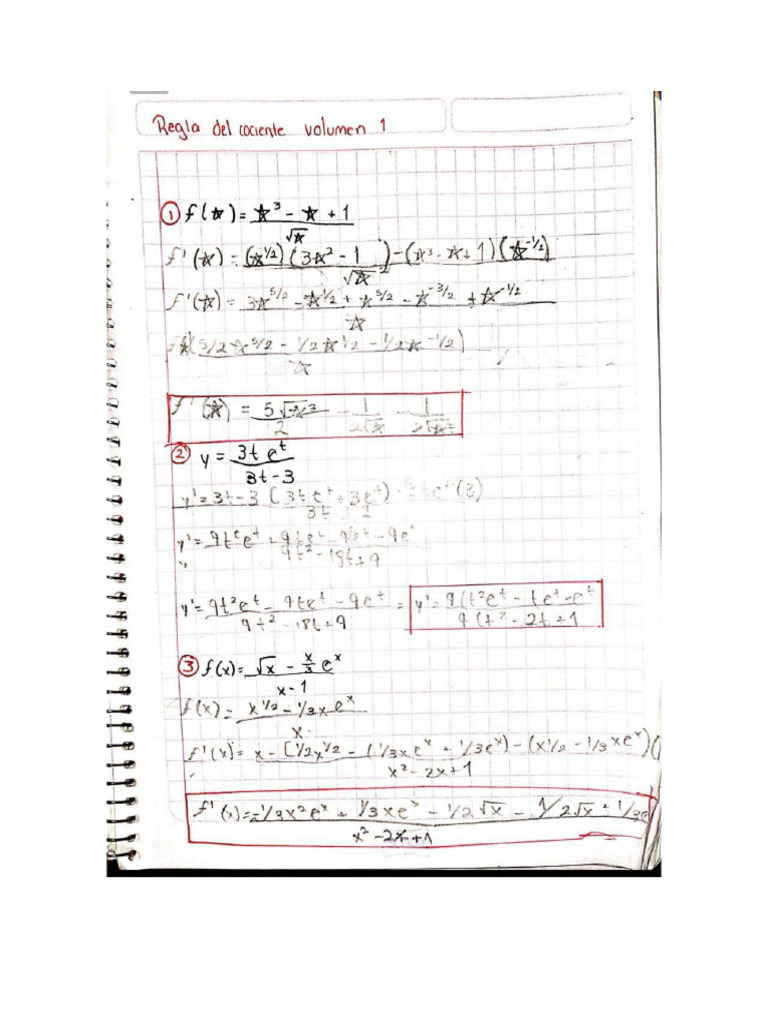 Regla del cociente volumen 1
① f(☆) = ☆³ - ☆ + 1 / √☆
f'(☆) = (☆^1/2)(3☆² - 1) - (☆³ - ☆ + 1)(☆^-1/2) / √☆²
f'(☆) = 3☆^5/2 - ☆^1/2 + ☆^5/2 - ☆^-3/2 + ☆^-1/2 / ☆
(5/2 ☆^5/2 - 1/2 ☆^1/2 - 1/2 ☆^-1/2) / ☆
f'(☆) = 5√☆³ / 2 - 1 / 2√☆ - 1
② y = 3t e^t / 3t-3
y' = 3t-3 (3t e^t + 3e^t) - e^t (3)
y' = 9t²e^t + 9te^t - 9e^t - 9e^t / 9t² - 18t + 9
y' = 9t²e^t - 9te^t - 9e^t / 9t² - 18t + 9 = y' = 9(t²e^t - te^t - e^t / 9(t² - 2t + 1
③ f(x) = √x - x/3 e^x / x-1
f(x) = x^1/2 - 1/3xe^x / x-
f'(x) = x - (1/2x^1/2 - (1/3xe^x + 1/3e^x) - (x^1/2 - 1/3xe^x)( / x² - 2x + 1
f'(x) = -1/3x²e^x + 1/3xe^x - 1/2√x - 1/2√x + 1/3e / x² - 2x + 1